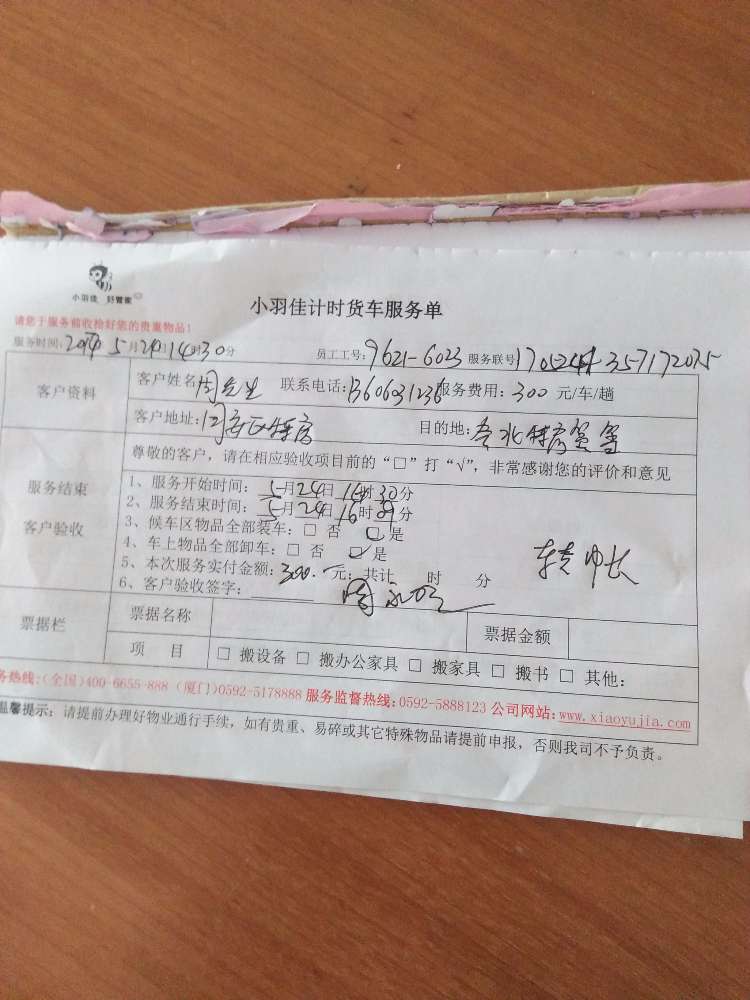 小羽佳 好管家
小羽佳计时货车服务单
请您于服务前收检好您的贵重物品!
服务时间: 5月24日14时30分 员工工号:9621-6023 服务联号
客户资料
客户姓名:周先生 联系电话: 服务费用:300元/车/趟
客户地址: 目的地:
服务结束
客户验收
尊敬的客户,请在相应验收项目前的“□”打“√”,非常感谢您的评价和意见
1、服务开始时间:5月24日16时30分
2、服务结束时间:5月24日16时 分
3、候车区物品全部装车:□ 否 □ 是
4、车上物品全部卸车:□ 否 □ 是
5、本次服务实付金额:300.-元;共计 时 分
6、客户验收签字:
票据栏
票据名称 票据金额
项 目 □ 搬设备 □ 搬办公家具 □ 搬家具 □ 搬书 □ 其他:
务热线:(全国)400-6655-888 (厦门)0592-5178888 服务监督热线:0592-5888123 公司网站:www.xiaoyujia.com
温馨提示:请提前办理好物业通行手续,如有贵重、易碎或其它特殊物品请提前申报,否则我司不予负责。